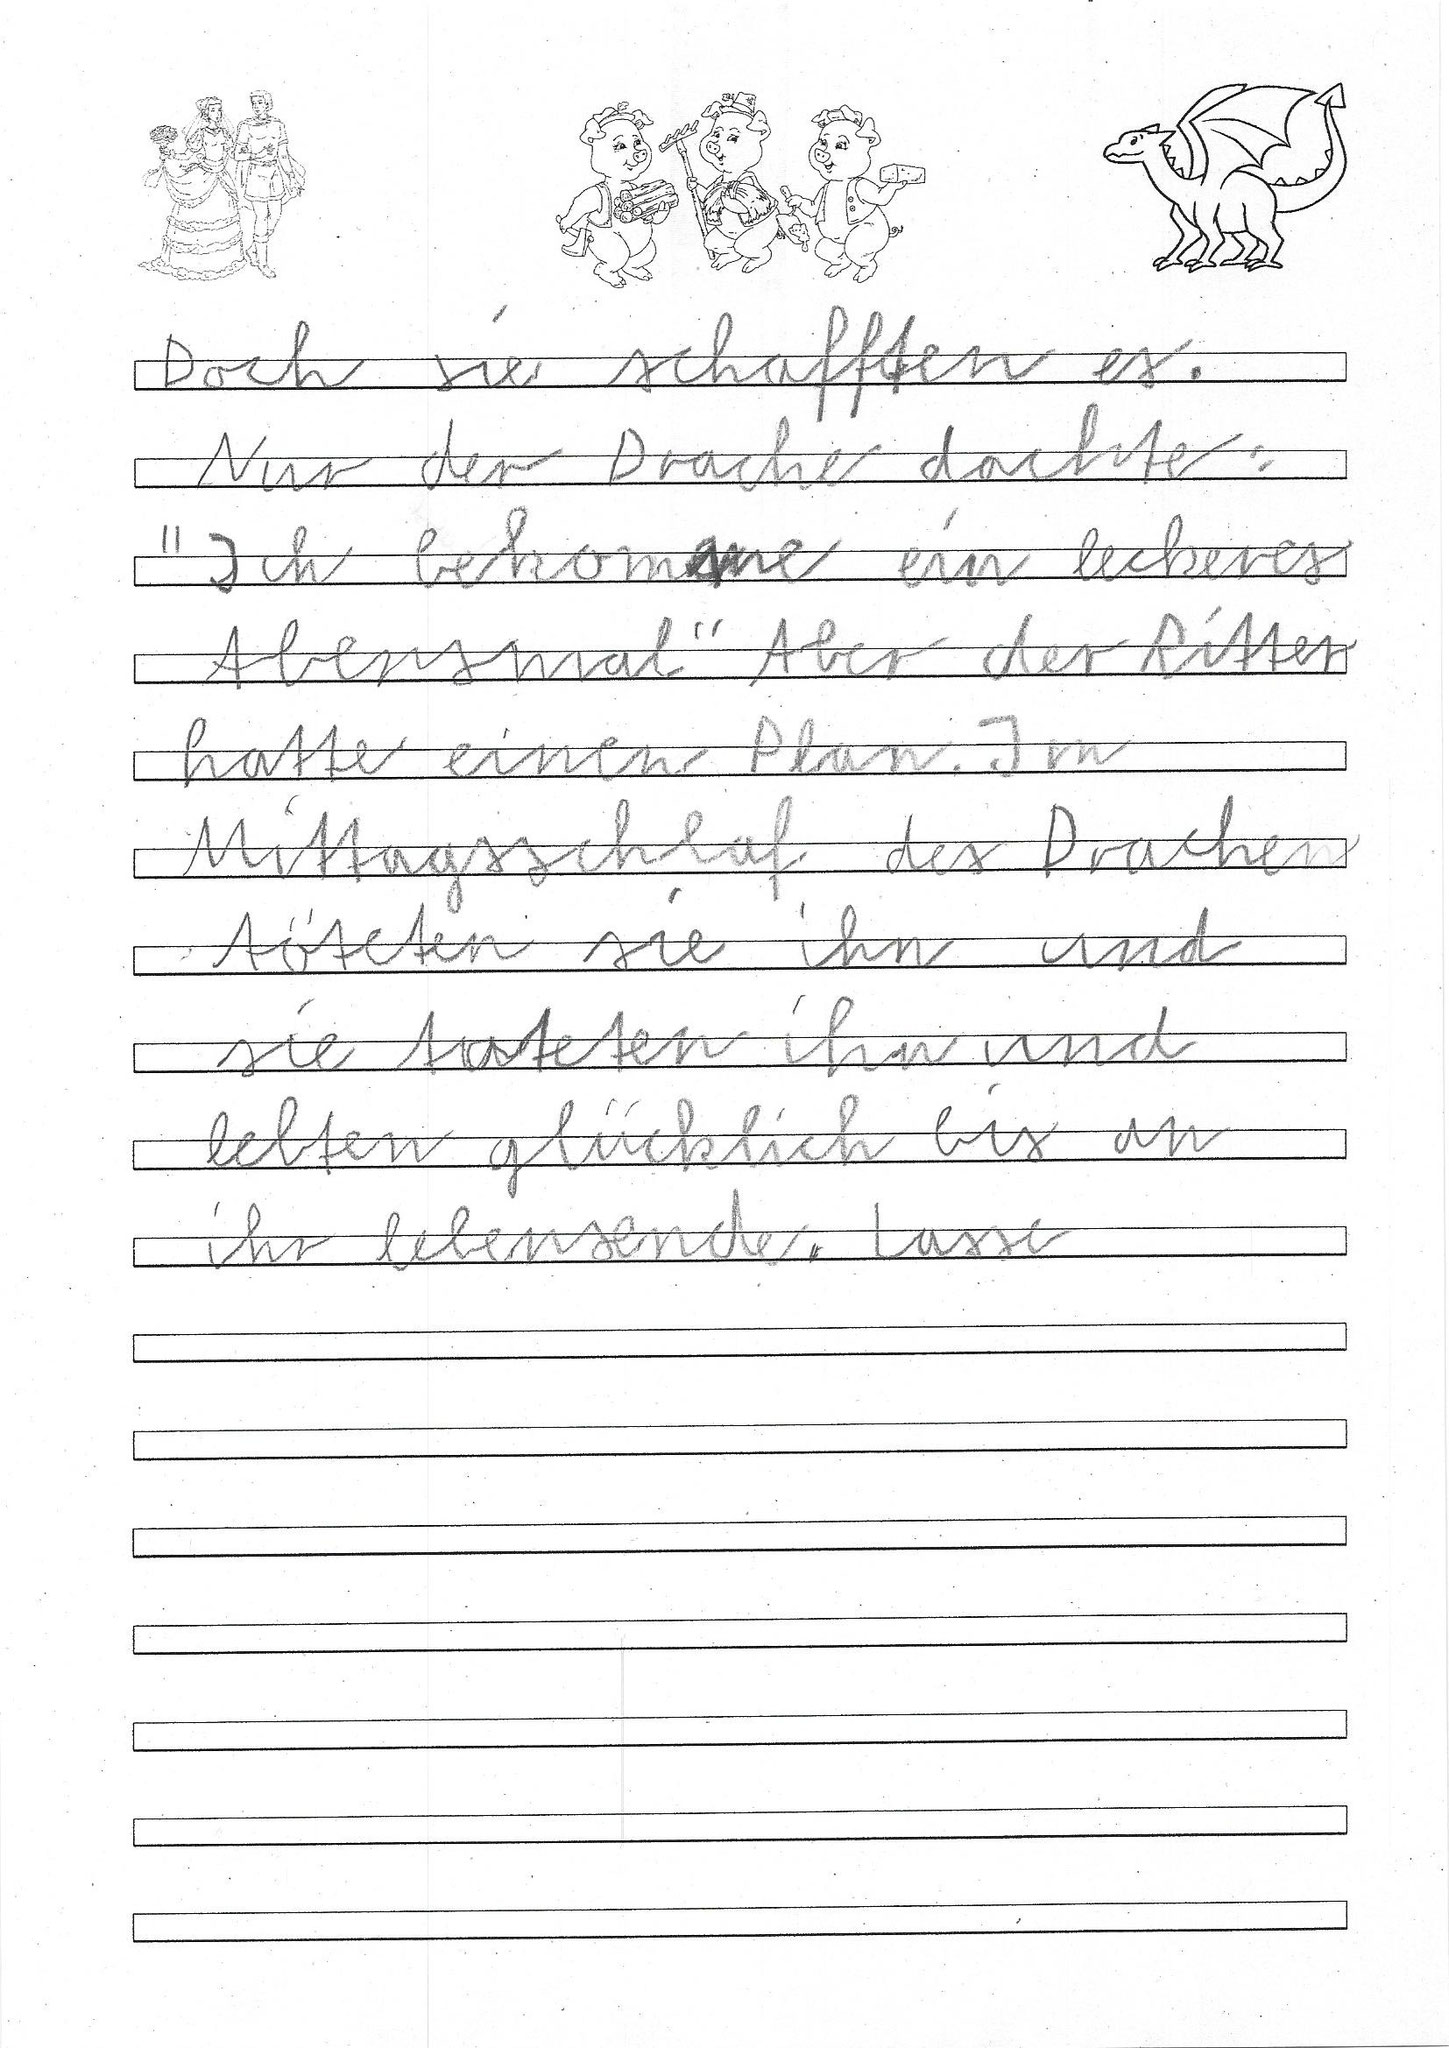 Doch sie schafften es.
Nur der Drache dachte:
"Ich bekomme ein leckeres
Abensmal" Aber der Ritter
hatte einen Plan. Im
Mittagsschlaf des Drachen
töteten sie ihn und
sie tateten ihn und
lebten glücklich bis an
ihr lebensende. Lasse